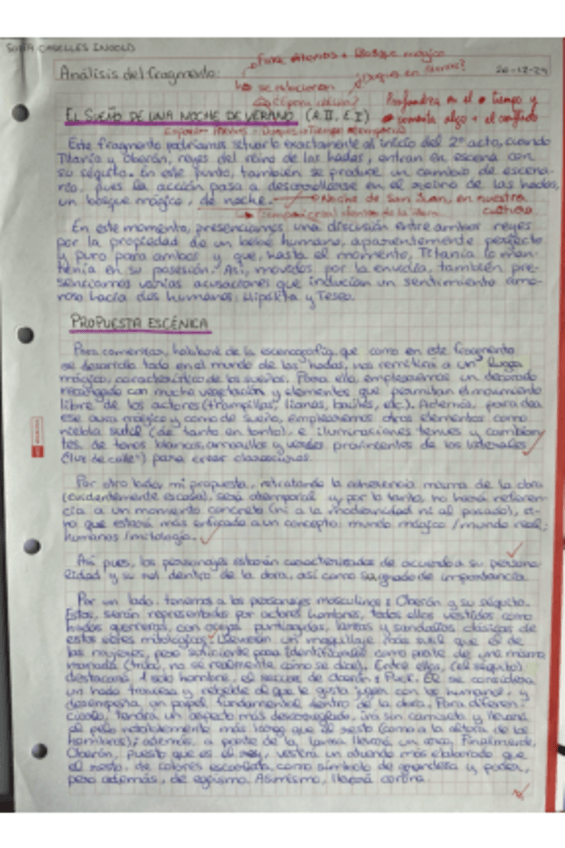 SOFÍA CANELLES INGOLD
Fuxe Atenas + Bosque mágico
Análisis del fragmento:
se relacionan
¿Duques en hadas?
26-12-24
EL SUEÑO DE UNA NOCHE DE VERANO (A.II, E.I)
Profundiza en el tiempo y
comenta algo + el conflicto
Este fragmento podríamos situarlo exactamente al inicio del 2º acto, cuando
Titania y Oberón, reyes del reino de las hadas, entran en escena con
su séquito. En este punto, también se produce un cambio de escena-
rio, pues la acción pasa a desarrollarse en el reino de las hadas,
un bosque mágico, de noche.
Noche de San Juan, en nuestra
cultura
En este momento, presenciamos una discusión entre ambos reyes
por la propiedad de un bebé humano, aparentemente perfecto
y puro para ambos y que, hasta el momento, Titania lo man-
tenía en su posesión. Así, movidos por la envidia, también pre-
senciamos varias acusaciones que inducían un sentimiento amo-
roso hacia dos humanos: Hipólita y Teseo.
PROPUESTA ESCÉNICA
Para comenzar, hablaré de la escenografía, que como en este fragmento
se desarrolla todo en el mundo de las hadas, nos remitirá a un lugar
mágico, característico de los sueños. Para ello, emplearemos un decorado
recargado con mucha vegetación y elementos que permitan el movimiento
libre de los actores (trampillas, lianas, baúles, etc.). Además, para dar
ese aura mágico y como de sueño, emplearemos otros elementos como
niebla sutil (de tanto en tanto), e iluminaciones tenues y cambian-
tes, de tonos blancos, amarillos y verdes provinientes de los laterales
("luz de calle") para crear claroscuros.
Por otro lado, mi propuesta, retratando la coherencia misma de la obra
(evidentemente escasa), será atemporal y por lo tanto, no hará referen-
cia a un momento concreto (ni a la modernidad ni al pasado), si-
no que estará más enfocada a un concepto: mundo mágico / mundo real;
humanos / mitología.
Así pues, los personajes estarán caracterizados de acuerdo a su persona-
lidad y su rol dentro de la obra, así como su grado de importancia.
Por un lado, tenemos a los personajes masculinos: Oberón y su séquito.
Estos, serán representados por actores hombres, todos ellos vestidos como
hados guerreros, con orejas puntiagudas, lanzas y sandalias clásicas de
estos seres mitológicos. Llevarán un maquillaje más sutil que el de
las mujeres, pero suficiente para identificarlos como parte de una misma
manada (tribu, no sé realmente cómo se dice). Entre ellos, (el séquito)
destacará 1 solo hombre, el secuaz de Oberón: Puck. Él se considera
un hado travieso y rebelde al que le gusta jugar con los humanos, y
desempeña un papel fundamental dentro de la obra. Para diferen-
ciarlo, tendrá un aspecto más descuidado, irá sin camiseta y llevará
el pelo notablemente más largo que el resto (como a la altura de los
hombros); además, a parte de la lanza llevará un arco. Finalmente,
Oberón, puesto que es el rey, vestirá un atuendo más elaborado que
el resto, de colores escarlata, como símbolo de grandeza y poder,
pero además, de egoísmo. Asimismo, llevará corona.